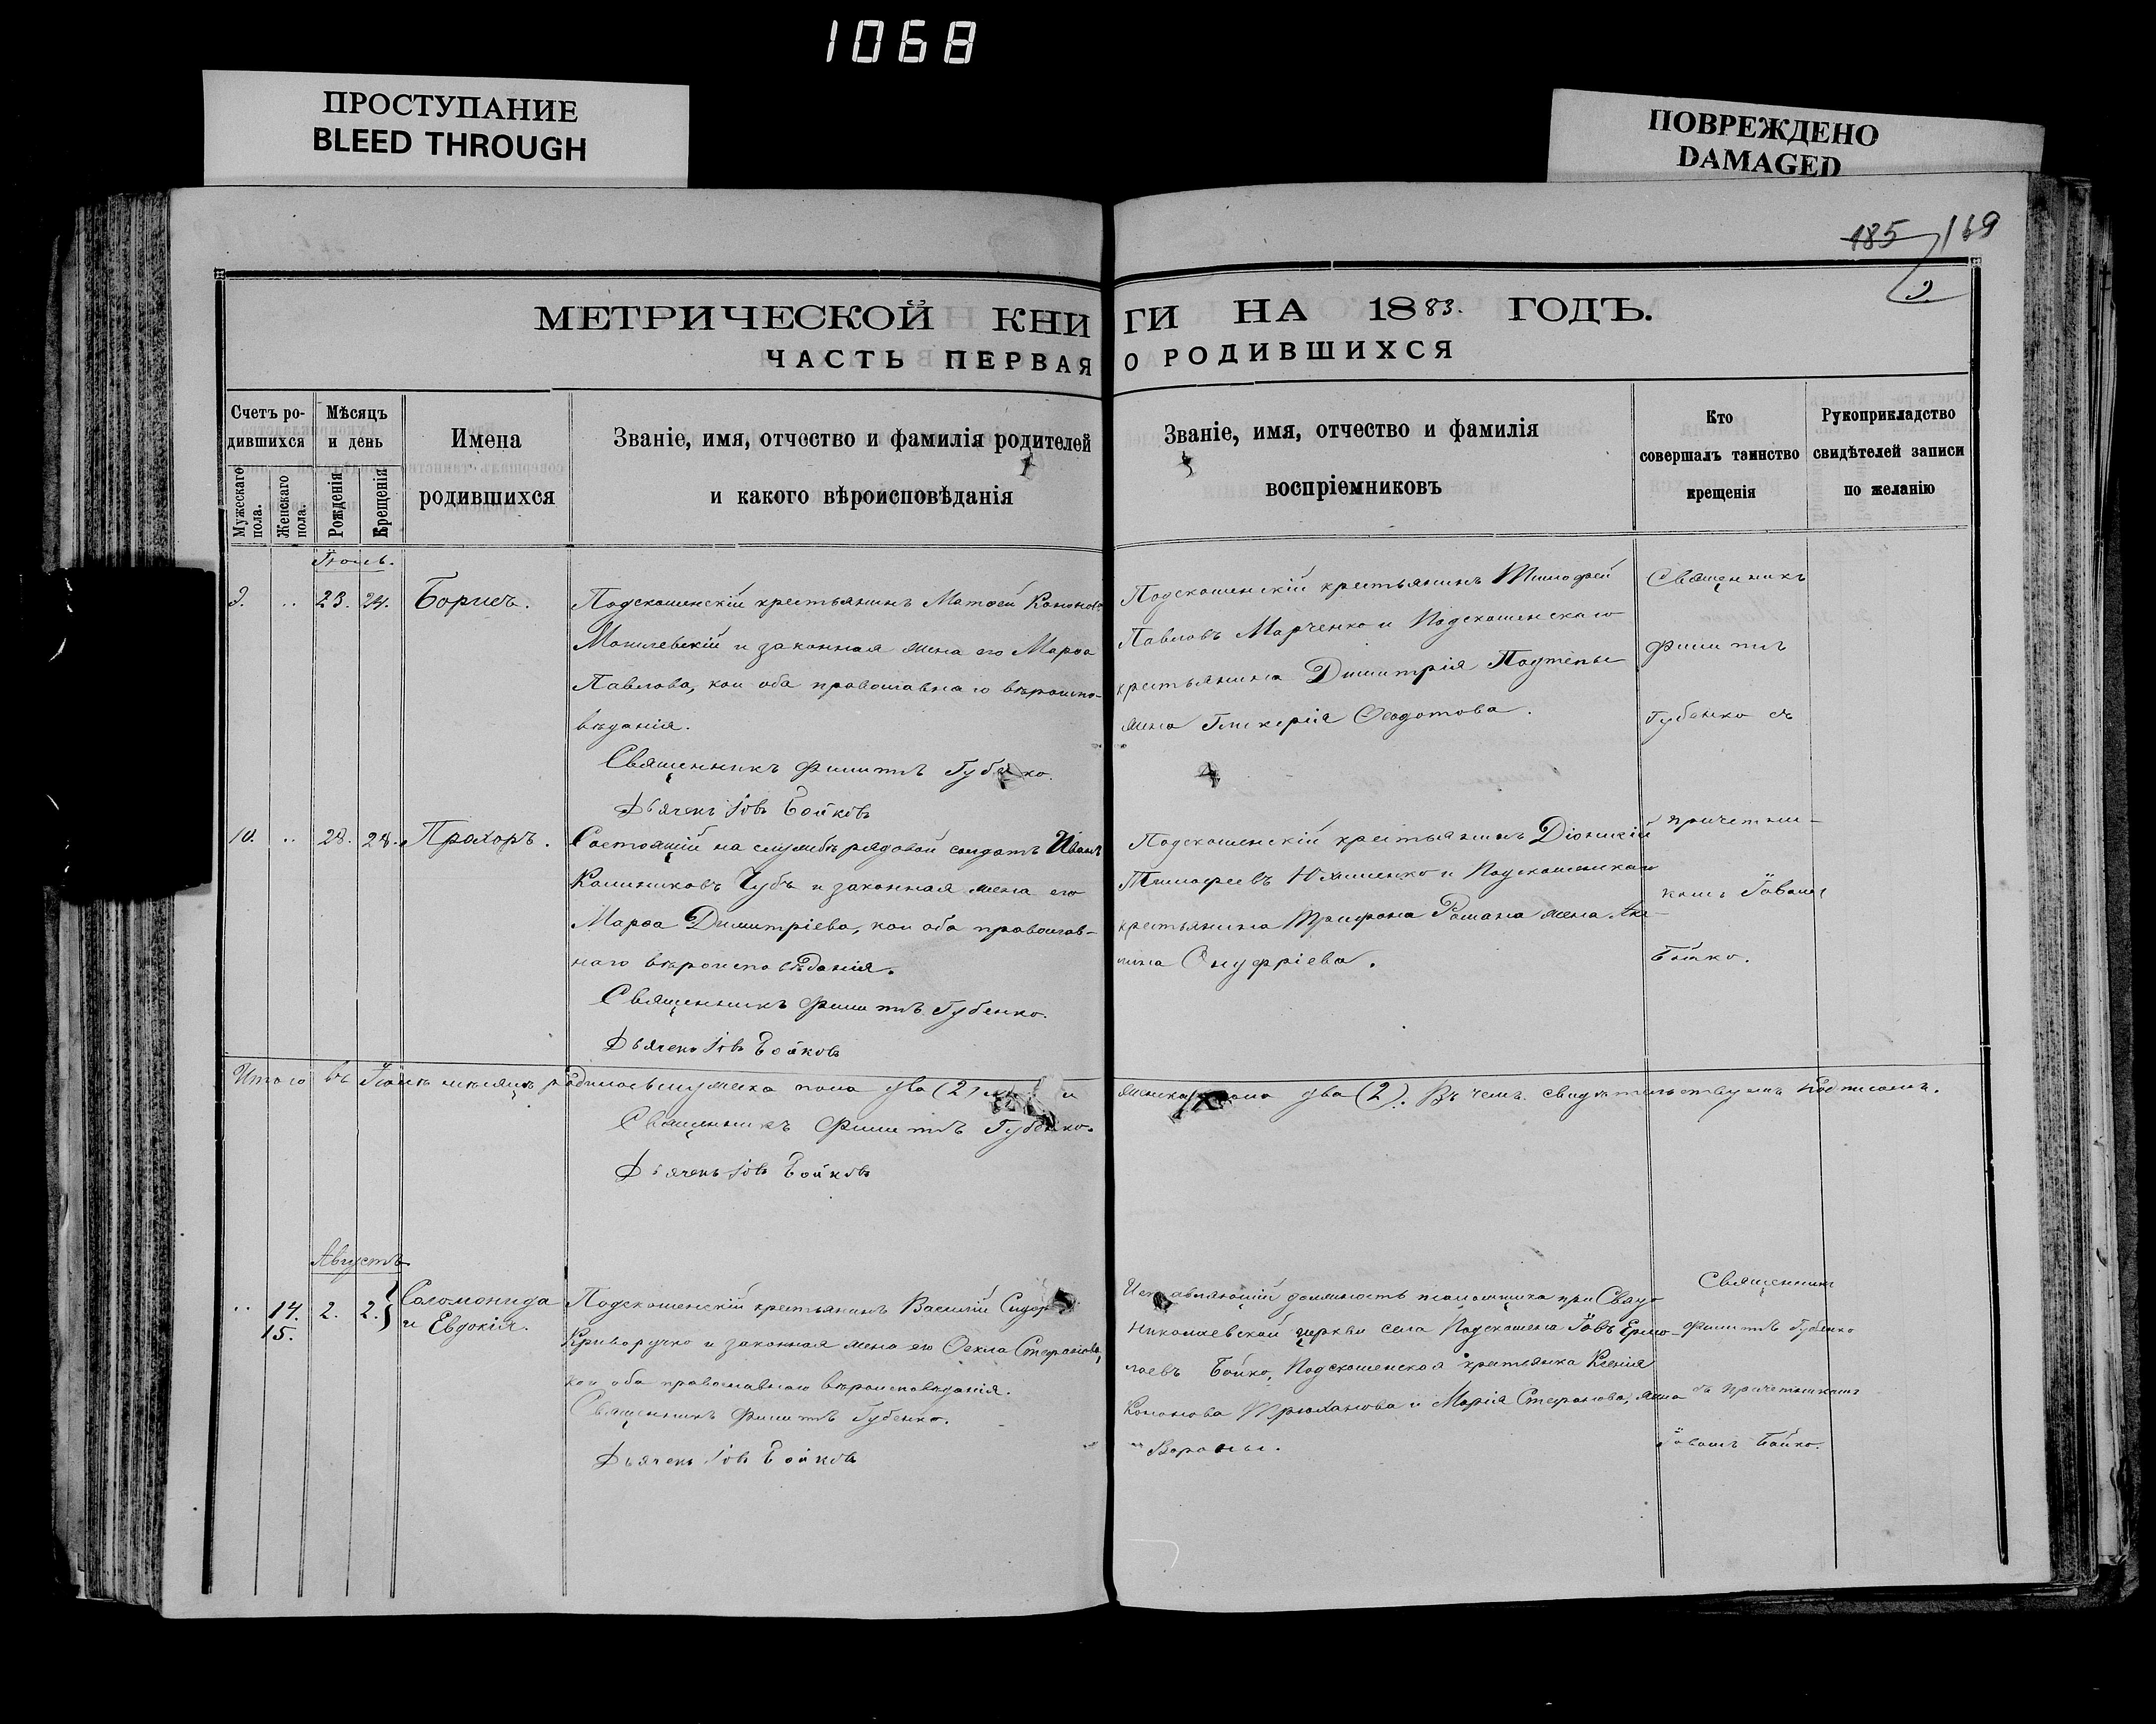 1068
ПРОСТУПАНИЕ
BLEED THROUGH
ПОВРЕЖДЕНО
DAMAGED
185 169
9
МЕТРИЧЕСКОЙ КНИГИ НА 1883. ГОДЪ.
ЧАСТЬ ПЕРВАЯ О РОДИВШИХСЯ
Счетъ ро-
дившихся
Мужескаго
пола.
Женскаго
пола.
Мѣсяцъ
и день
Рожденія
Крещенія
Имена
родившихся
Званіе, имя, отчество и фамилія родителей
и какого вѣроисповѣданія
Званіе, имя, отчество и фамилія
воспріемниковъ
Кто
совершалъ таинство
крещенія
Рукоприкладство
свидѣтелей записи
по желанію
Іюль.
9. .. 23. 24. Борисъ.
Подскошенскій крестьянинъ Матѳей Кононовъ
Могилевскій и законная жена его Марѳа
Павлова, кои оба православнаго вѣроиспо-
вѣданія.
Священникъ Филиппъ Губенко.
Дьячекъ Іовъ Бойковъ
Подскошенскій крестьянинъ Тимофей
Павловъ Марченко и Подскошенскаго
крестьянина Димитрія
жена Гликерія Ѳеодотова.
Священникъ
Филиппъ
Губенко съ
причетни-
комъ Іовомъ
Бойко.
10. .. 28. 28. Прохоръ.
Состоящій на службѣ рядовой солдатъ Иванъ
Калиниковъ Чубъ и законная жена его
Марѳа Димитріева, кои оба православ-
наго вѣроисповѣданія.
Священникъ Филиппъ Губенко.
Дьячекъ Іовъ Бойковъ
Подскошенскій крестьянинъ Діонисій
Тимофеевъ Юхименко и Подскошенскаго
крестьянина Трифона Романа жена Аку-
лина Онуфріева.
Итого въ Іюлѣ мѣсяцѣ родилось мужеска пола два (2) и женска пола два (2). Въ чемъ свидѣтельствуемъ подписомъ.
Священникъ Филиппъ Губенко.
Дьячекъ Іовъ Бойковъ
Августъ.
.. 14. 2. 2. Соломонида
15. и Евдокія.
Подскошенскій крестьянинъ Василій
Криворучко и законная жена его Ѳекла Стефанова,
кои оба православнаго вѣроисповѣданія.
Священникъ Филиппъ Губенко.
Дьячекъ Іовъ Бойковъ
Исправляющій должность псаломщика при Свято
Николаевской церкви села Подскошена Іовъ Ермо-
лаевъ Бойко, Подскошенская крестьянка Ксенія
Кононова Трюханова и Марія Стефанова, жена
Вороны.
Священникъ
Филиппъ Губенко
съ причетникомъ
Іовомъ Бойко.